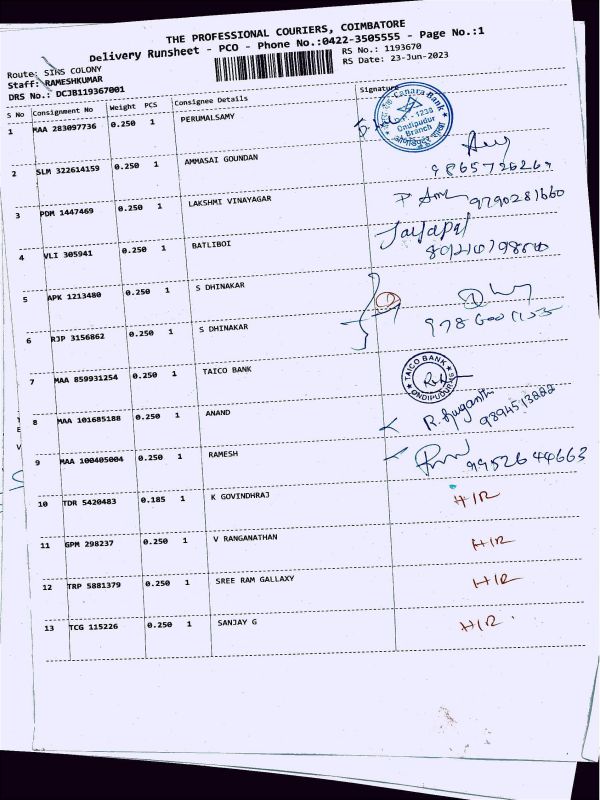 THE PROFESSIONAL COURIERS, COIMBATORE
Delivery Runsheet - PCO - Phone No.:0422-3505555 - Page No.:1
Route: SIHS COLONY
Staff: RAMESHKUMAR
DRS No.: DCJB119367001
RS No.: 1193670
RS Date: 23-Jun-2023
S No Consignment No Weight PCS Consignee Details Signature
1 MAA 283097736 0.250 1 PERUMALSAMY
Canara Bank
Ondipudur
Branch
2 SLM 322614159 0.250 1 AMMASAI GOUNDAN
9865726269
3 PDM 1447469 0.250 1 LAKSHMI VINAYAGAR
9790281660
4 VLI 305941 0.250 1 BATLIBOI
Jayapal
5 APK 1213480 0.250 1 S DHINAKAR
6 RJP 3156862 0.250 1 S DHINAKAR
7 MAA 859931254 0.250 1 TAICO BANK
TAICO BANK
ONDIPUDUR
8 MAA 101685188 0.250 1 ANAND
9894513882
9 MAA 100405004 0.250 1 RAMESH
9952644663
10 TDR 5420483 0.185 1 K GOVINDHRAJ H/R
11 GPM 298237 0.250 1 V RANGANATHAN H/R
12 TRP 5881379 0.250 1 SREE RAM GALLAXY H/R
13 TCG 115226 0.250 1 SANJAY G H/R